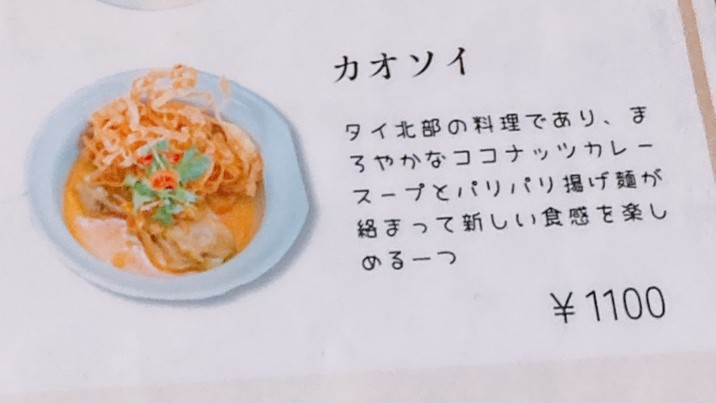 カオソイ
タイ北部の料理であり、ま
ろやかなココナッツカレー
スープとパリパリ揚げ麺が
絡まって新しい食感を楽し
める一つ
¥1100